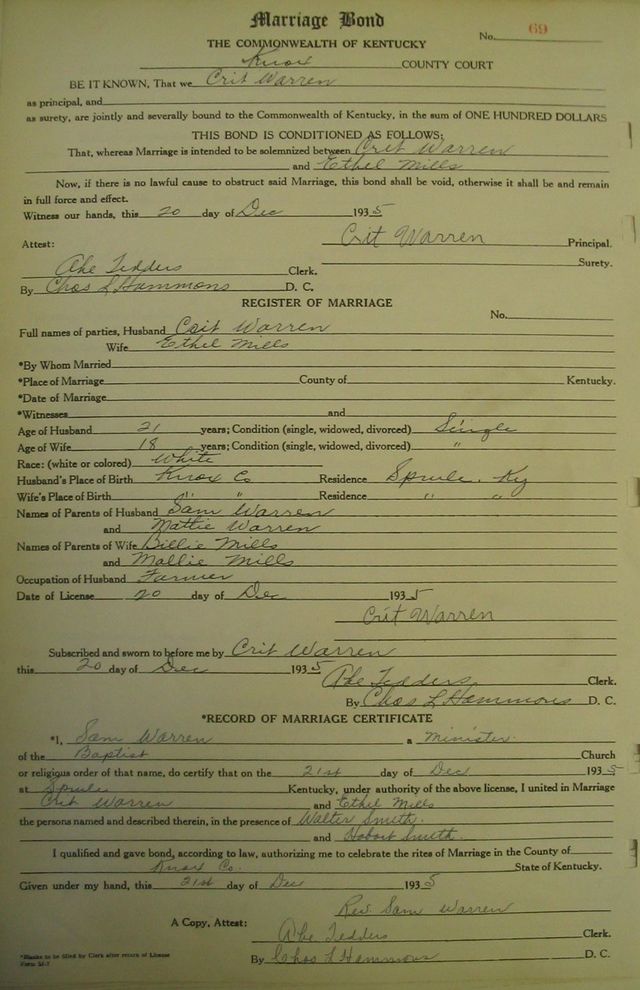 Marriage Bond
No. 69
THE COMMONWEALTH OF KENTUCKY
Knox COUNTY COURT
BE IT KNOWN, That we Crit Warren
as principal, and
as surety, are jointly and severally bound to the Commonwealth of Kentucky, in the sum of ONE HUNDRED DOLLARS
THIS BOND IS CONDITIONED AS FOLLOWS:
That, whereas Marriage is intended to be solemnized between Crit Warren
and Ethel Mills
Now, if there is no lawful cause to obstruct said Marriage, this bond shall be void, otherwise it shall be and remain
in full force and effect.
Witness our hands, this 20 day of Dec 1935
Crit Warren Principal.
Attest: Surety.
Abe Tedders Clerk.
By Chas L Hammons D. C.
REGISTER OF MARRIAGE
No.
Full names of parties, Husband Crit Warren
Wife Ethel Mills
*By Whom Married
*Place of Marriage County of Kentucky.
*Date of Marriage
*Witnesses and
Age of Husband 21 years; Condition (single, widowed, divorced) Single
Age of Wife 18 years; Condition (single, widowed, divorced) "
Race: (white or colored) White
Husband's Place of Birth Knox Co Residence Sprule. Ky
Wife's Place of Birth " " Residence " "
Names of Parents of Husband Sam Warren
and Mattie Warren
Names of Parents of Wife Billie Mills
and Mollie Mills
Occupation of Husband Farmer
Date of License 20 day of Dec 1935
Crit Warren
Subscribed and sworn to before me by Crit Warren
this 20 day of Dec 1935
Abe Tedders Clerk.
By Chas L Hammons D. C.
*RECORD OF MARRIAGE CERTIFICATE
*I, Sam Warren a Minister
of the Baptist Church
or religious order of that name, do certify that on the 21st day of Dec 1935
at Sprule Kentucky, under authority of the above license, I united in Marriage
Crit Warren and Ethel Mills
the persons named and described therein, in the presence of Walter Smith.
and Hobart Smith.
I qualified and gave bond, according to law, authorizing me to celebrate the rites of Marriage in the County of
Knox Co. State of Kentucky.
Given under my hand, this 21st day of Dec 1935
Rev. Sam Warren
A Copy, Attest:
Abe Tedders Clerk.
By Chas L Hammons D. C.
*Blanks to be filled by Clerk after return of License